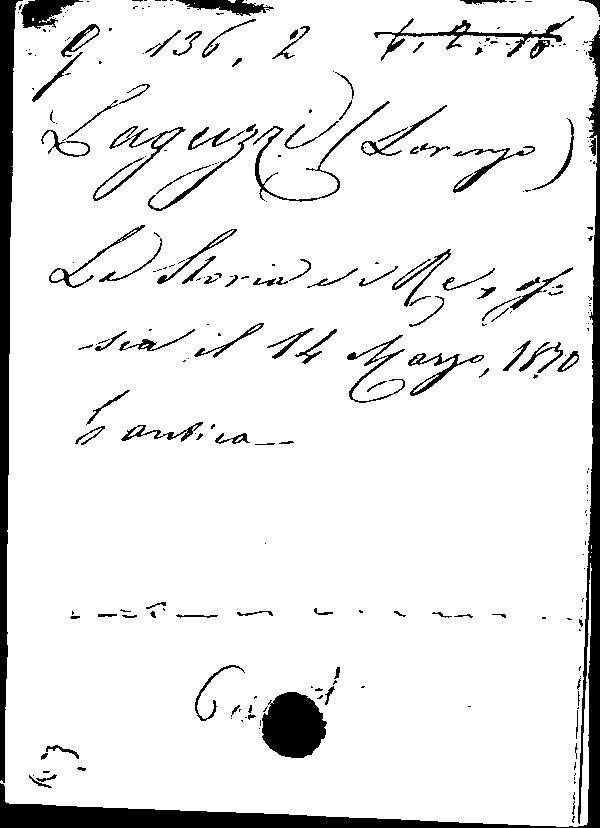 q. 136, 2 6. 2. 16
Laguzzi (Lorenzo)
La Storia e i Re, os-
sia il 14 Marzo, 1870
Cantica